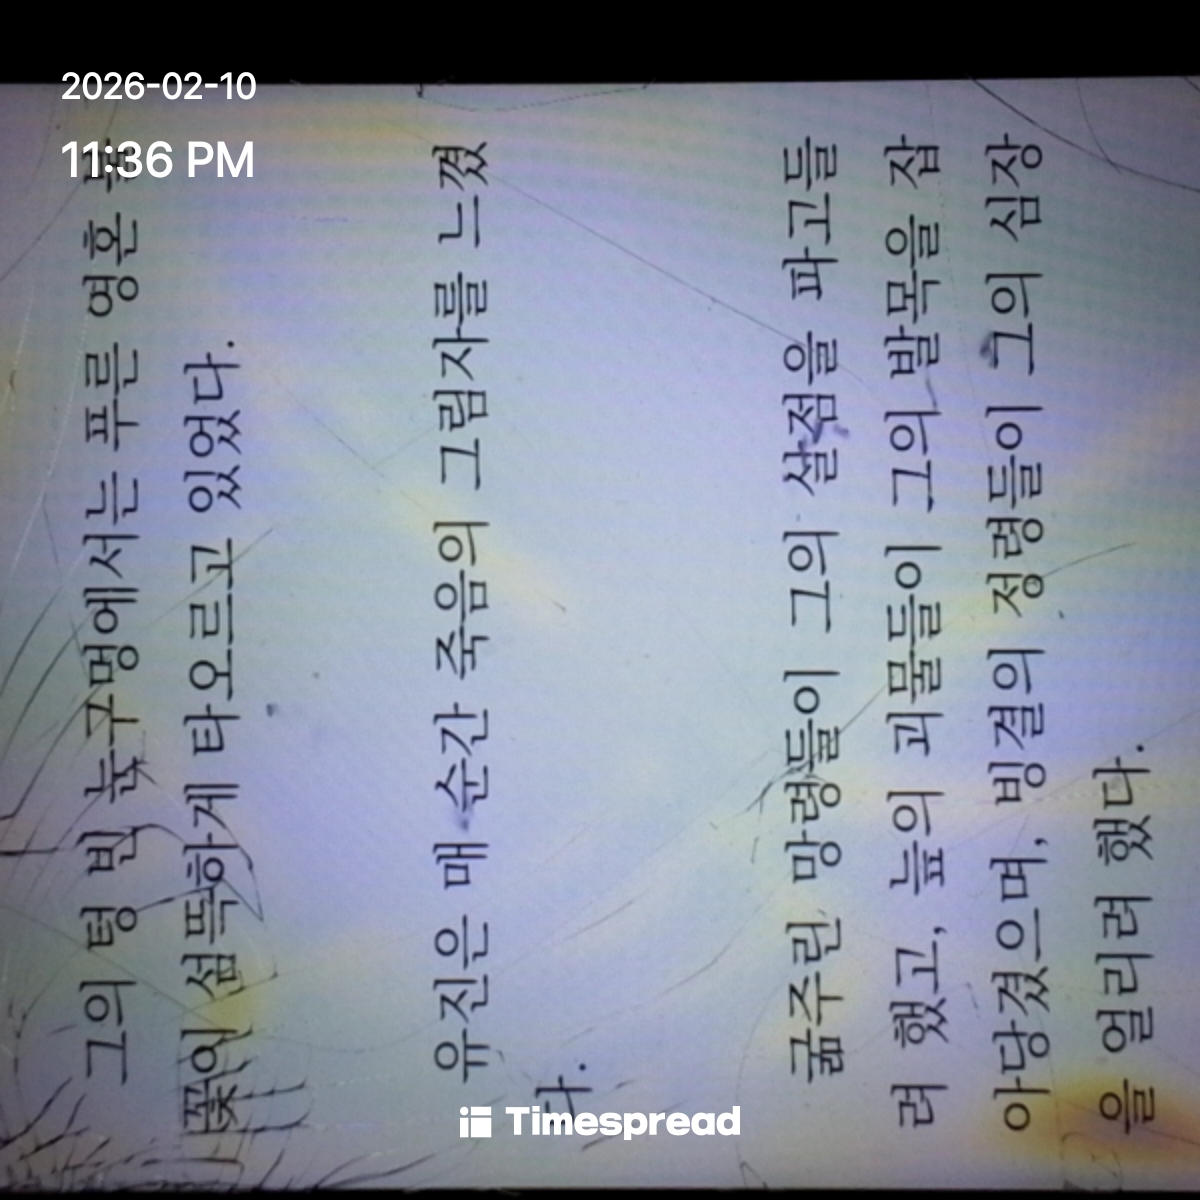 2026-02-10
11:36 PM
그의 텅 빈 눈구멍에서는 푸른 영혼
꽃이 섬뜩하게 타오르고 있었다.
유진은 매 순간 죽음의 그림자를 느꼈
다.
굶주린 망령들이 그의 살점을 파고들
려 했고, 늪의 괴물들이 그의 발목을 잡
아당겼으며, 빙결의 정령들이 그의 심장
을 얼리려 했다.
Timespread